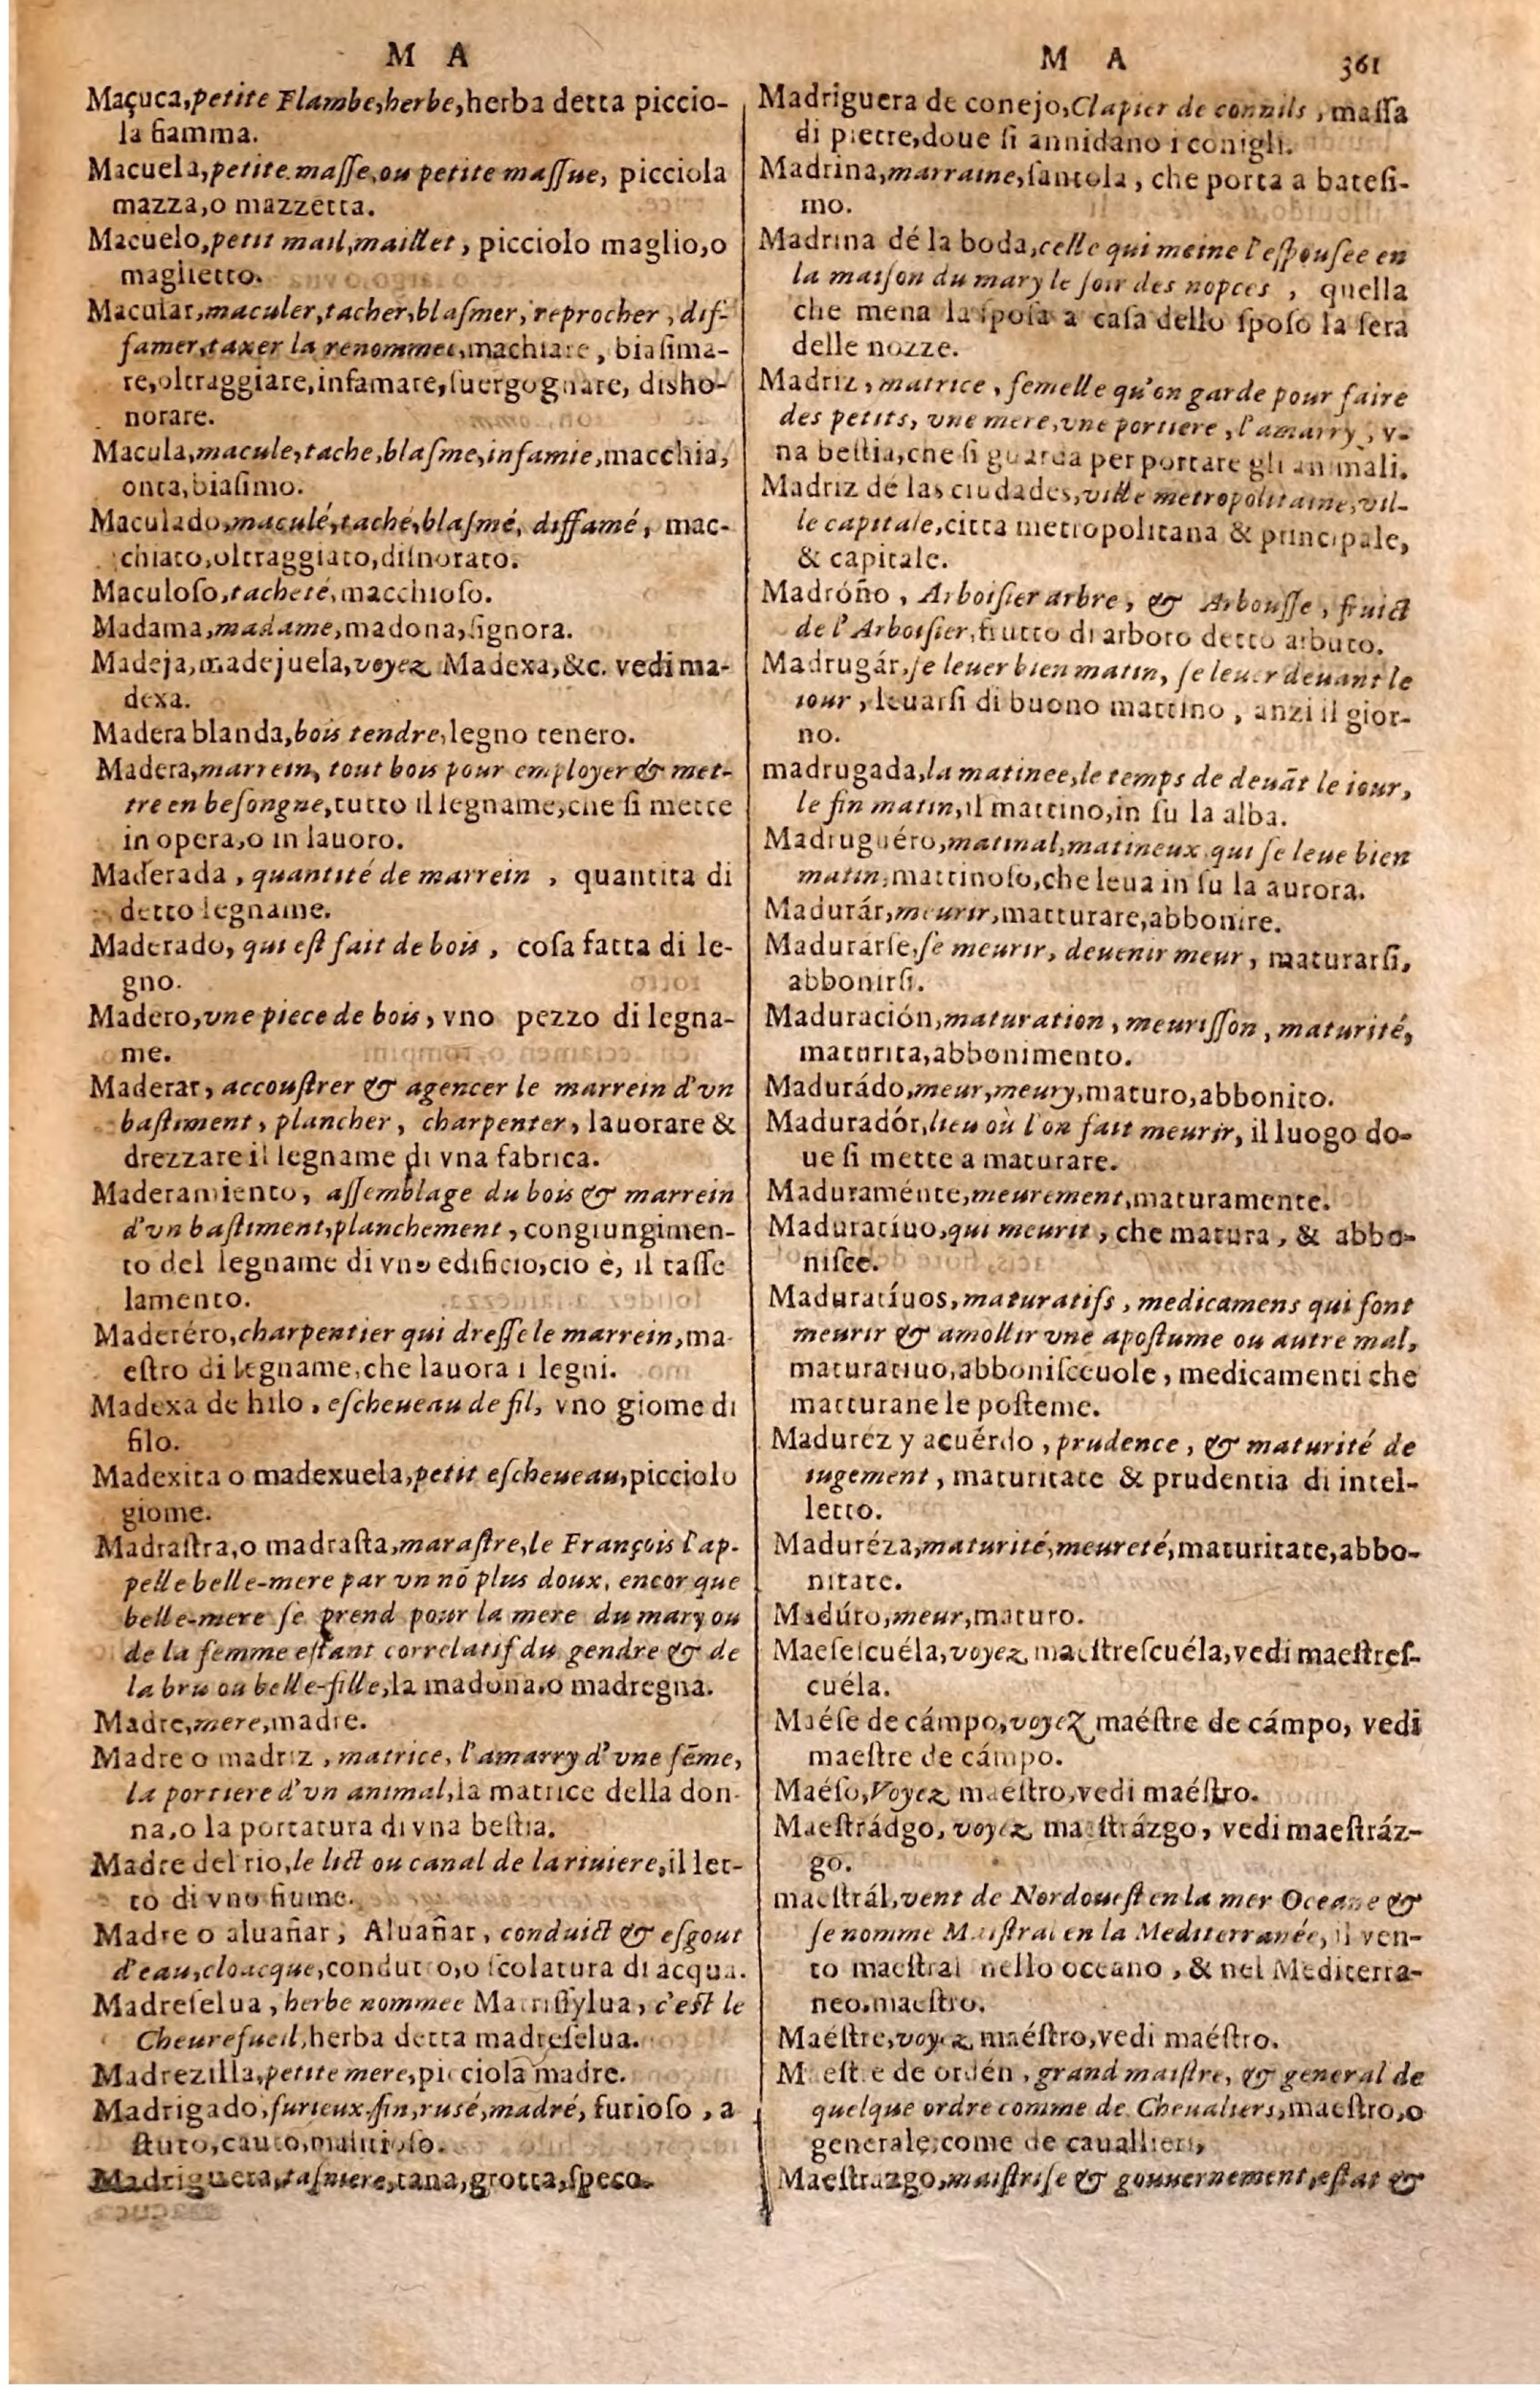 M A
Maçuca, petite Flambe, herbe, herba detta piccio-
la fiamma.
Macuela, petite maſſe, ou petite maſſue, picciola
mazza, o mazzetta.
Macuelo, petit mail, maillet, picciolo maglio, o
maglietto.
Macular, maculer, tacher, blaſmer, reprocher, diſ-
famer, taxer la renommee, machiare, biaſima-
re, oltraggiare, infamare, ſuergognare, disho-
norare.
Macula, macule, tache, blaſme, infamie, macchia,
onta, biaſimo.
Maculado, maculé, taché, blaſmé, diffamé, mac-
chiato, oltraggiato, diſnorato.
Maculoſo, tacheté, macchioſo.
Madama, madame, madona, ſignora.
Madeja, madejuela, voyez Madexa, &c. vedi ma-
dexa.
Madera blanda, bois tendre, legno tenero.
Madera, marrein, tout bois pour employer & met-
tre en beſongne, tutto il legname, che ſi mette
in opera, o in lauoro.
Maderada, quantité de marrein, quantita di
detto legname.
Maderado, qui eſt fait de bois, coſa fatta di le-
gno.
Madero, vne piece de bois, vno pezzo di legna-
me.
Maderar, accouſtrer & agencer le marrein d'vn
baſtiment, plancher, charpenter, lauorare &
drezzare il legname di vna fabrica.
Maderamiento, aſſemblage du bois & marrein
d'vn baſtiment, planchement, congiungimen-
to del legname di vno edificio, cio è, il taſſe
lamento.
Maderéro, charpentier qui dreſſe le marrein, ma-
eſtro di legname, che lauora i legni.
Madexa de hilo, eſcheueau de fil, vno giome di
filo.
Madexita o madexuela, petit eſcheueau, picciolo
giome.
Madraſtra, o madraſta, maraſtre, le François l'ap-
pelle belle-mere par vn nõ plus doux, encor que
belle-mere ſe prend pour la mere du mary ou
de la femme eſtant correlatif du gendre & de
la bru ou belle-fille, la madona, o madregna.
Madre, mere, madre.
Madre o madriz, matrice, l'amarry d'vne fẽme,
la portiere d'vn animal, la matrice della don-
na, o la portatura di vna beſtia.
Madre del rio, le lict ou canal de la riuiere, il let-
to di vno fiume.
Madre o aluañar, Aluañar, conduict & eſgout
d'eau, cloacque, condutto, o ſcolatura di acqua.
Madreſelua, herbe nommee Matriſſylua, c'eſt le
Cheurefueil, herba detta madreſelua.
Madrezilla, petite mere, picciola madre.
Madrigado, furieux, fin, ruſé, madré, furioſo, a
ſtuto, cauto, malitioſo.
Madriguera, taſniere, tana, grotta, ſpeco.
M A 361
Madriguera de conejo, Clapier de connils, maſſa
di pietre, doue ſi annidano i conigli.
Madrina, marraine, ſantola, che porta a bateſi-
mo.
Madrina dé la boda, celle qui meine l'eſpouſee en
la maiſon du mary le ſoir des nopces, quella
che mena la ſpoſa a caſa dello ſpoſo la ſera
delle nozze.
Madriz, matrice, femelle qu'on garde pour faire
des petits, vne mere, vne portiere, l'amarry, v-
na beſtia, che ſi guarda per portare gli animali.
Madriz dé las ciudades, ville metropolitaine, vil-
le capitale, citta metropolitana & principale,
& capitale.
Madróño, Arboiſier arbre, & Arbouſſe, fruict
de l'Arboiſier, frutto di arboro detto arbuto.
Madrugár, ſe leuer bien matin, ſe leuer deuant le
iour, leuarſi di buono mattino, anzi il gior-
no.
madrugada, la matinee, le temps de deuãt le iour,
le fin matin, il mattino, in ſu la alba.
Madruguéro, matinal, matineux, qui ſe leue bien
matin, mattinoſo, che leua in ſu la aurora.
Madurár, meurir, matturare, abbonire.
Madurárſe, ſe meurir, deuenir meur, maturarſi,
abbonirſi.
Maduración, maturation, meuriſſon, maturité,
maturita, abbonimento.
Madurádo, meur, meury, maturo, abbonito.
Maduradór, lieu où l'on fait meurir, il luogo do-
ue ſi mette a maturare.
Maduraménte, meurement, maturamente.
Maduratíuo, qui meurit, che matura, & abbo-
niſce.
Maduratíuos, maturatifs, medicamens qui font
meurir & amollir vne apoſtume ou autre mal,
maturatiuo, abboniſceuole, medicamenti che
matturane le poſteme.
Madurez y acuérdo, prudence, & maturité de
iugement, maturitate & prudentia di intel-
letto.
Maduréza, maturité, meureté, maturitate, abbo-
nitate.
Madúro, meur, maturo.
Maeſeſcuéla, voyez maeſtreſcuéla, vedi maeſtreſ-
cuéla.
Maéſe de cámpo, voyez maéſtre de cámpo, vedi
maeſtre de cámpo.
Maéſo, Voyez maeſtro, vedi maéſtro.
Maeſtrádgo, voyez maeſtrázgo, vedi maeſtráz-
go.
maeſtrál, vent de Nordoueſt en la mer Oceane &
ſe nomme Maiſtral en la Mediterranée, il ven-
to maeſtral nello oceano, & nel Mediterra-
neo, maeſtro.
Maéſtre, voyez maéſtro, vedi maéſtro.
Maeſtre de ordén, grand maiſtre, & general de
quelque ordre comme de Cheualiers, maeſtro, o
generale, come de cauallieri,
Maeſtrazgo, maiſtriſe & gouuernement, eſtat &